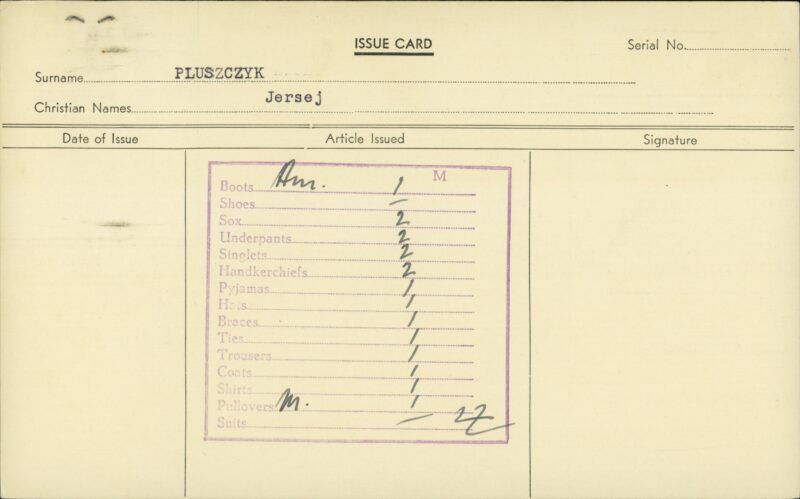 ISSUE CARD
Serial No.
Surname PLUSZCZYK
Christian Names Jersej
Date of Issue Article Issued Signature
M
Boots Am. 1
Shoes —
Sox 2
Underpants 2
Singlets 2
Handkerchiefs 2
Pyjamas 1
Hats 1
Braces 1
Ties 1
Trousers 1
Coats 1
Shirts 1
Pullovers M. 1
Suits —